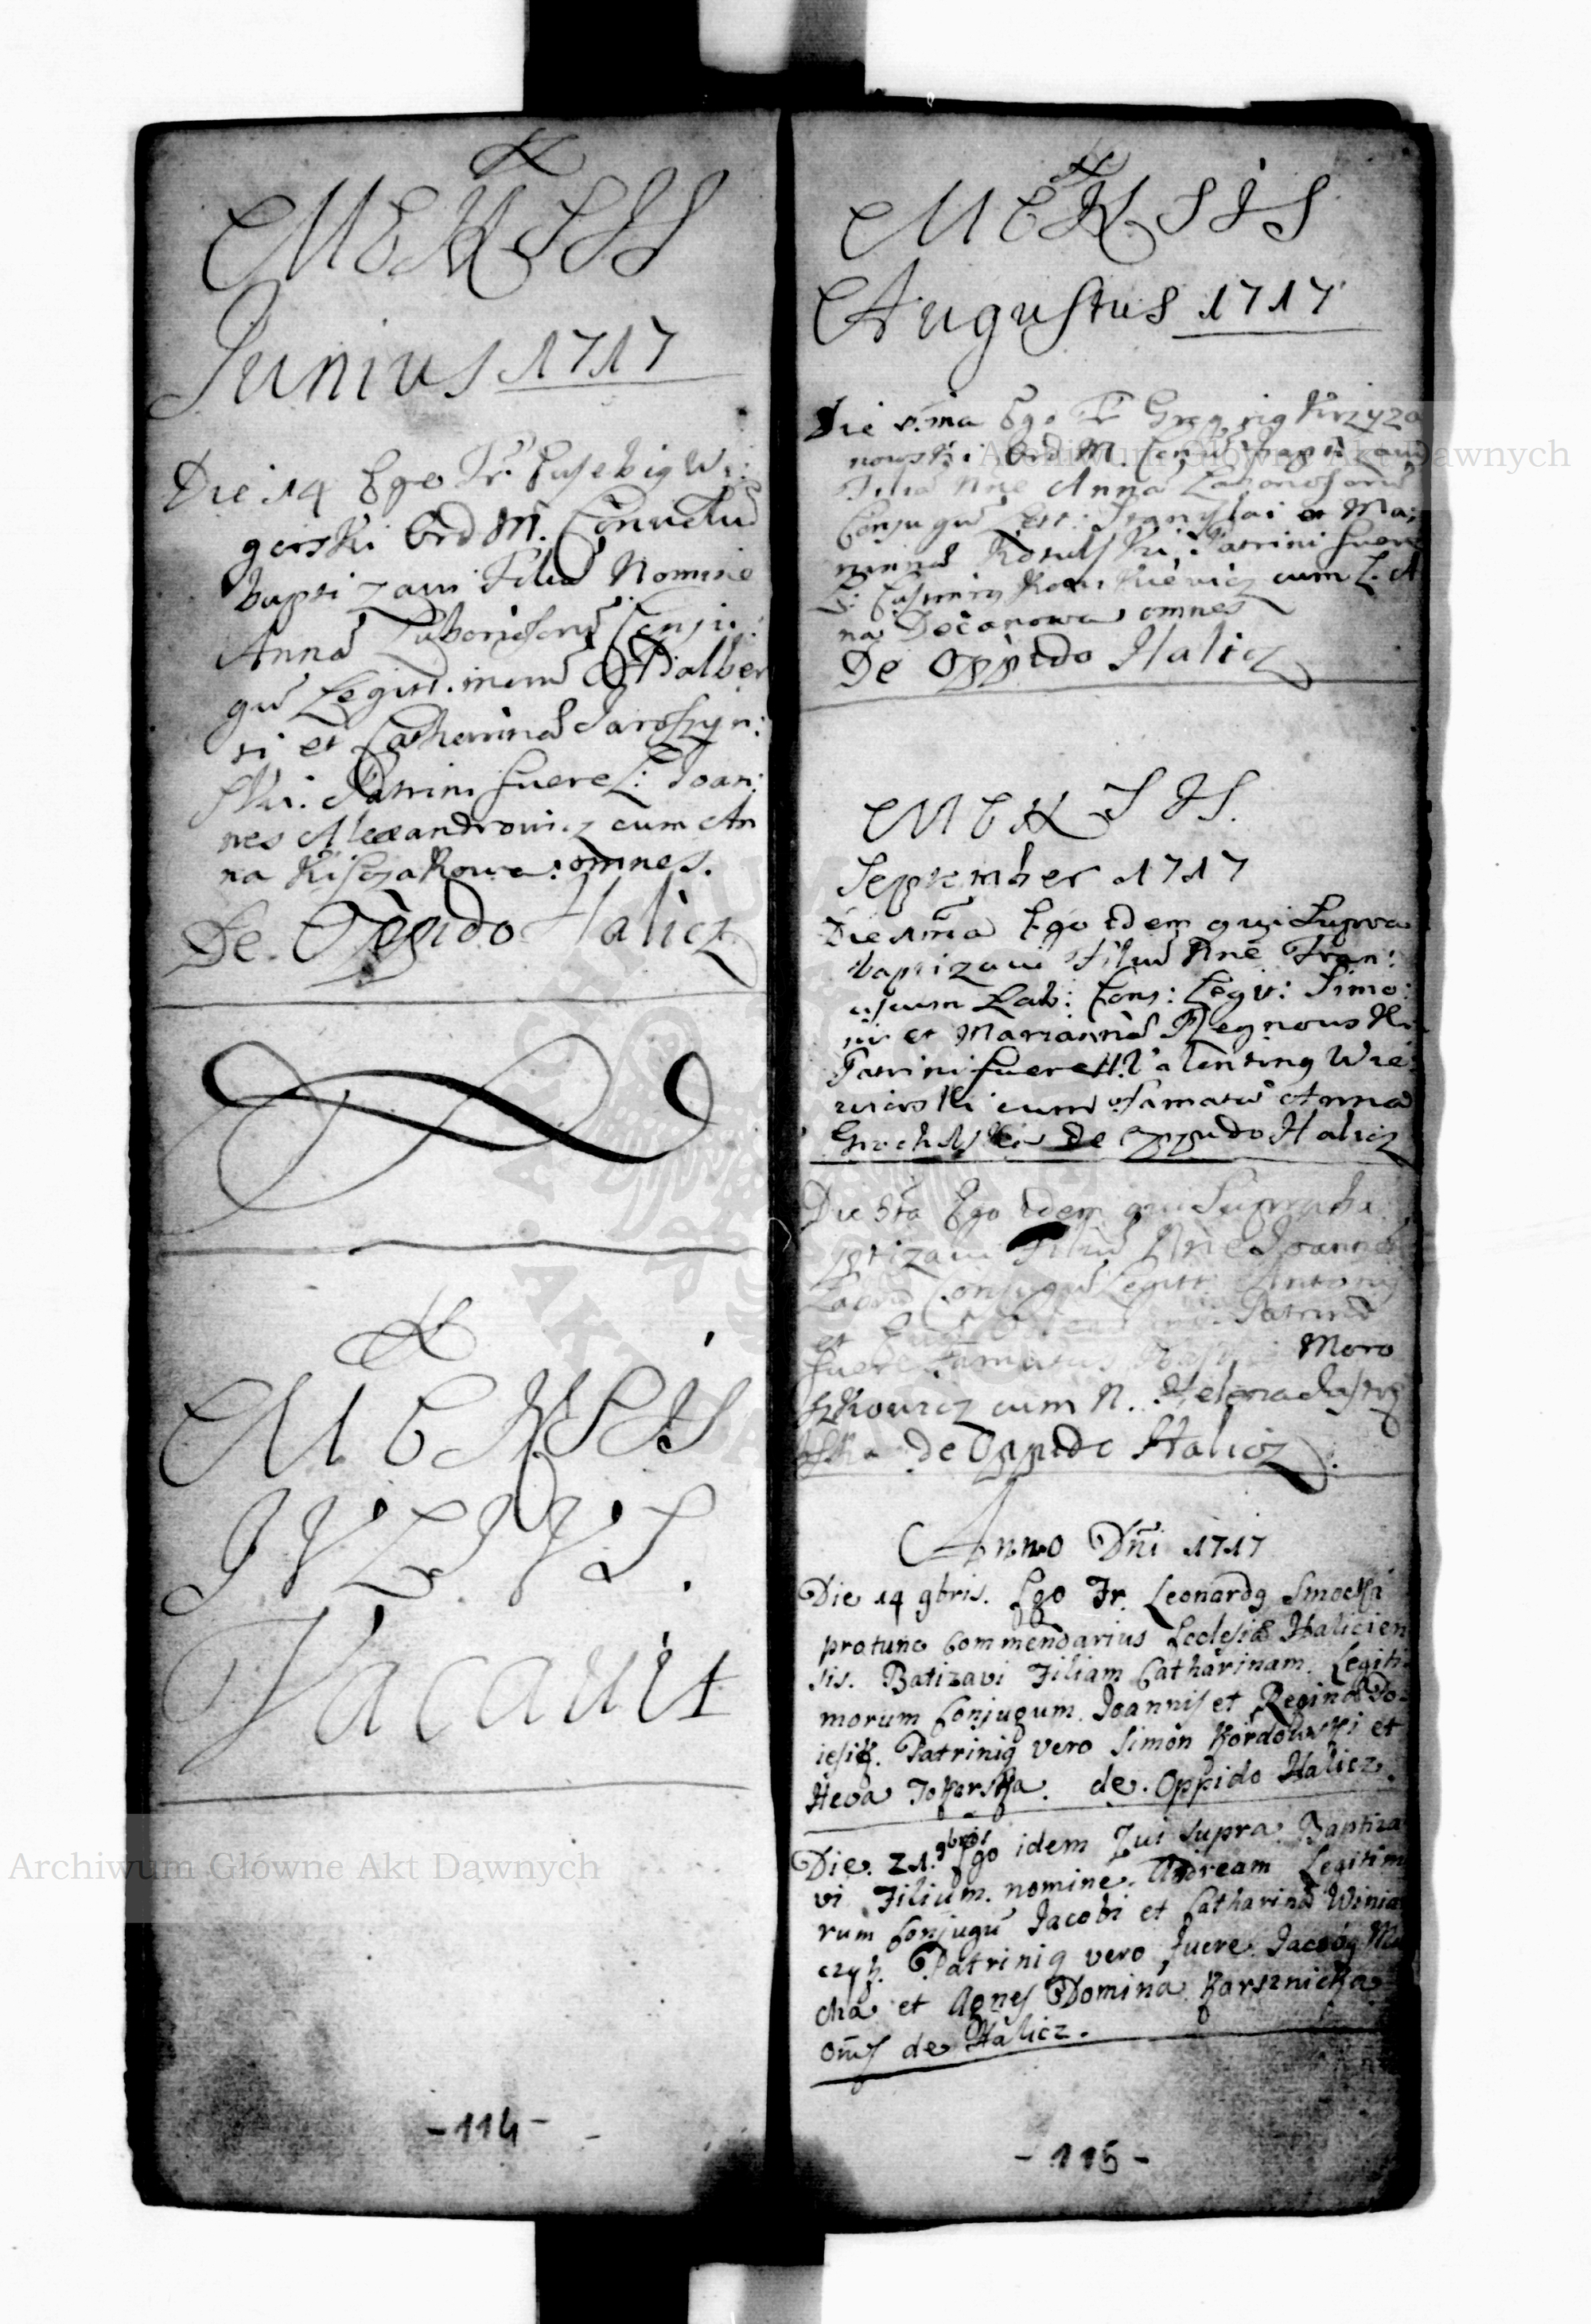 MENSIS
Junius 1717
Die 14 Ego Fr. Eusebig Wę:
gorski Ord M. Convētuũ
baptizavi Filiã Nomine
Annã Laboriosorũ Conju:
gũ Legitt.imorũ Adalber
ti et Catharinæ Jaroszyn:
ski. Patrini fuere L: Joan:
nes Alexandrowicz cum An
na Kiszczakowa: omnes.
De Oppido Halicz
MENSIS
IVLIVS.
Vacavit
-114-
MENSIS
Augustus 1717
Die Ego Fr Gregorig Krzyza
nowski Ord M. Conv baptizavi
Filiã Nne Annã Laboriosorũ
Conjugũ Legt: Stanyslai et Ma:
riannæ Patrini fuere
L: Casimirg cum L. A
na omnes
De Oppido Halicz
MENSIS.
September 1717
Die Ego idem qui Supra
baptizavi Filiũ Nne Fran:
ciscum Lab: Conj: Legit: Simo:
nis et Mariannæ Regnowski
Patrini fuere Valenting Wie
wiorski cum Famata Anna
de oppido Halicz
Die 5ta Ego idem qui Supra ba
ptizavi Filiũ Nne Joannem
Labor Conjugũ Legitt: Antonij
et Patrini
fuere Famatus Moro
szkowicz cum N. Helena
de Oppido Halicz.
Anno Dñi 1717
Die 14 9bris. Ego Fr. Leonardg Smocki
protunc Commendarius Ecclesiæ Halicien
sis. Batizavi Filiam Catharinam. Legiti
morum Conjugum. Joannis et Reginæ Do:
Patrinig vero Simon Kordowski et
Heva Tokarska. de. Oppido Halicz.
Die. 21. 9bris Ego idem Qui supra Baptiza
vi Filium. nomine. Andream Legitim
rum Conjugũ Jacobi et Catharinæ Winia
czyk. Patrinig vero fuere Jacobg Ma
cha et Agnes Domina Karsznicka
Oms de Halicz.
-115-
Archiwum Główne Akt Dawnych
Archiwum Główne Akt Dawnych